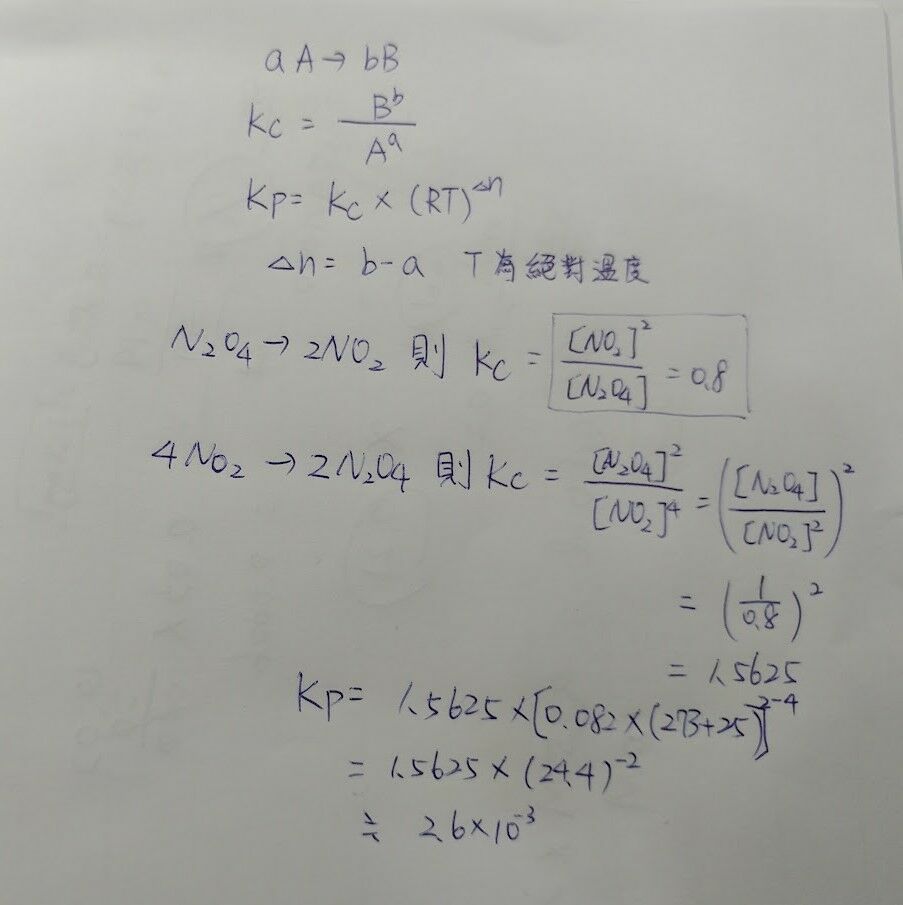 aA→bB
Kc = B^b / A^a
Kp = Kc × (RT)^Δn
Δn = b-a T為絕對溫度
N₂O₄→2NO₂ 則 Kc = [NO₂]² / [N₂O₄] = 0.8
4NO₂→2N₂O₄ 則 Kc = [N₂O₄]² / [NO₂]⁴ = ([N₂O₄] / [NO₂]²)²
= (1 / 0.8)²
= 1.5625
Kp = 1.5625×[0.082×(273+25)]^2-4
= 1.5625×(24.4)⁻²
≒ 2.6×10⁻³